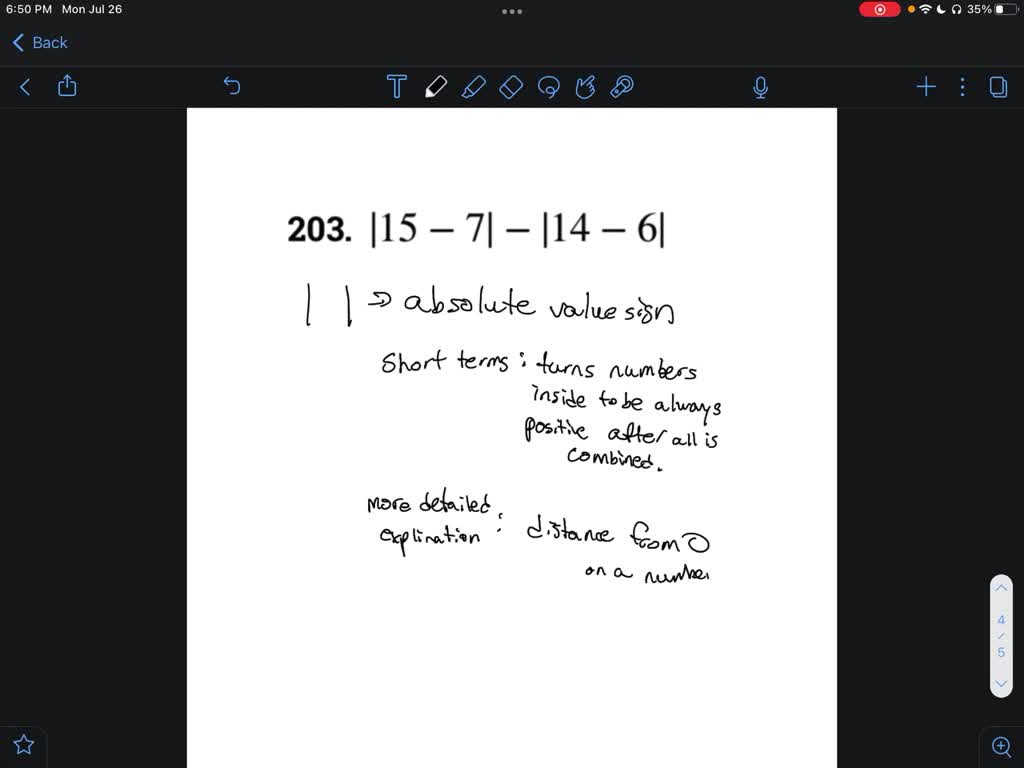 6:50 PM Mon Jul 26
35%
Back
T
203. |15 − 7| − |14 − 6|
| | => absolute value sign
Short terms : turns numbers
inside to be always
positive after all is
combined.
more detailed
explination : distance from 0
on a number
4
/
5